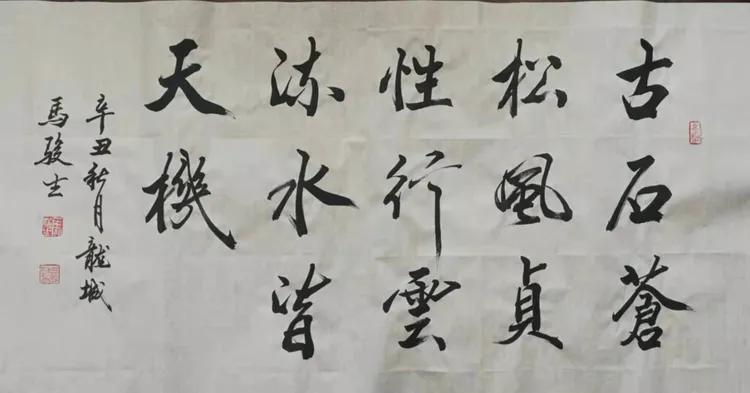 古石蒼
松風貞
性行雲
流水皆
天機
辛丑秋月龍城
馬駿生